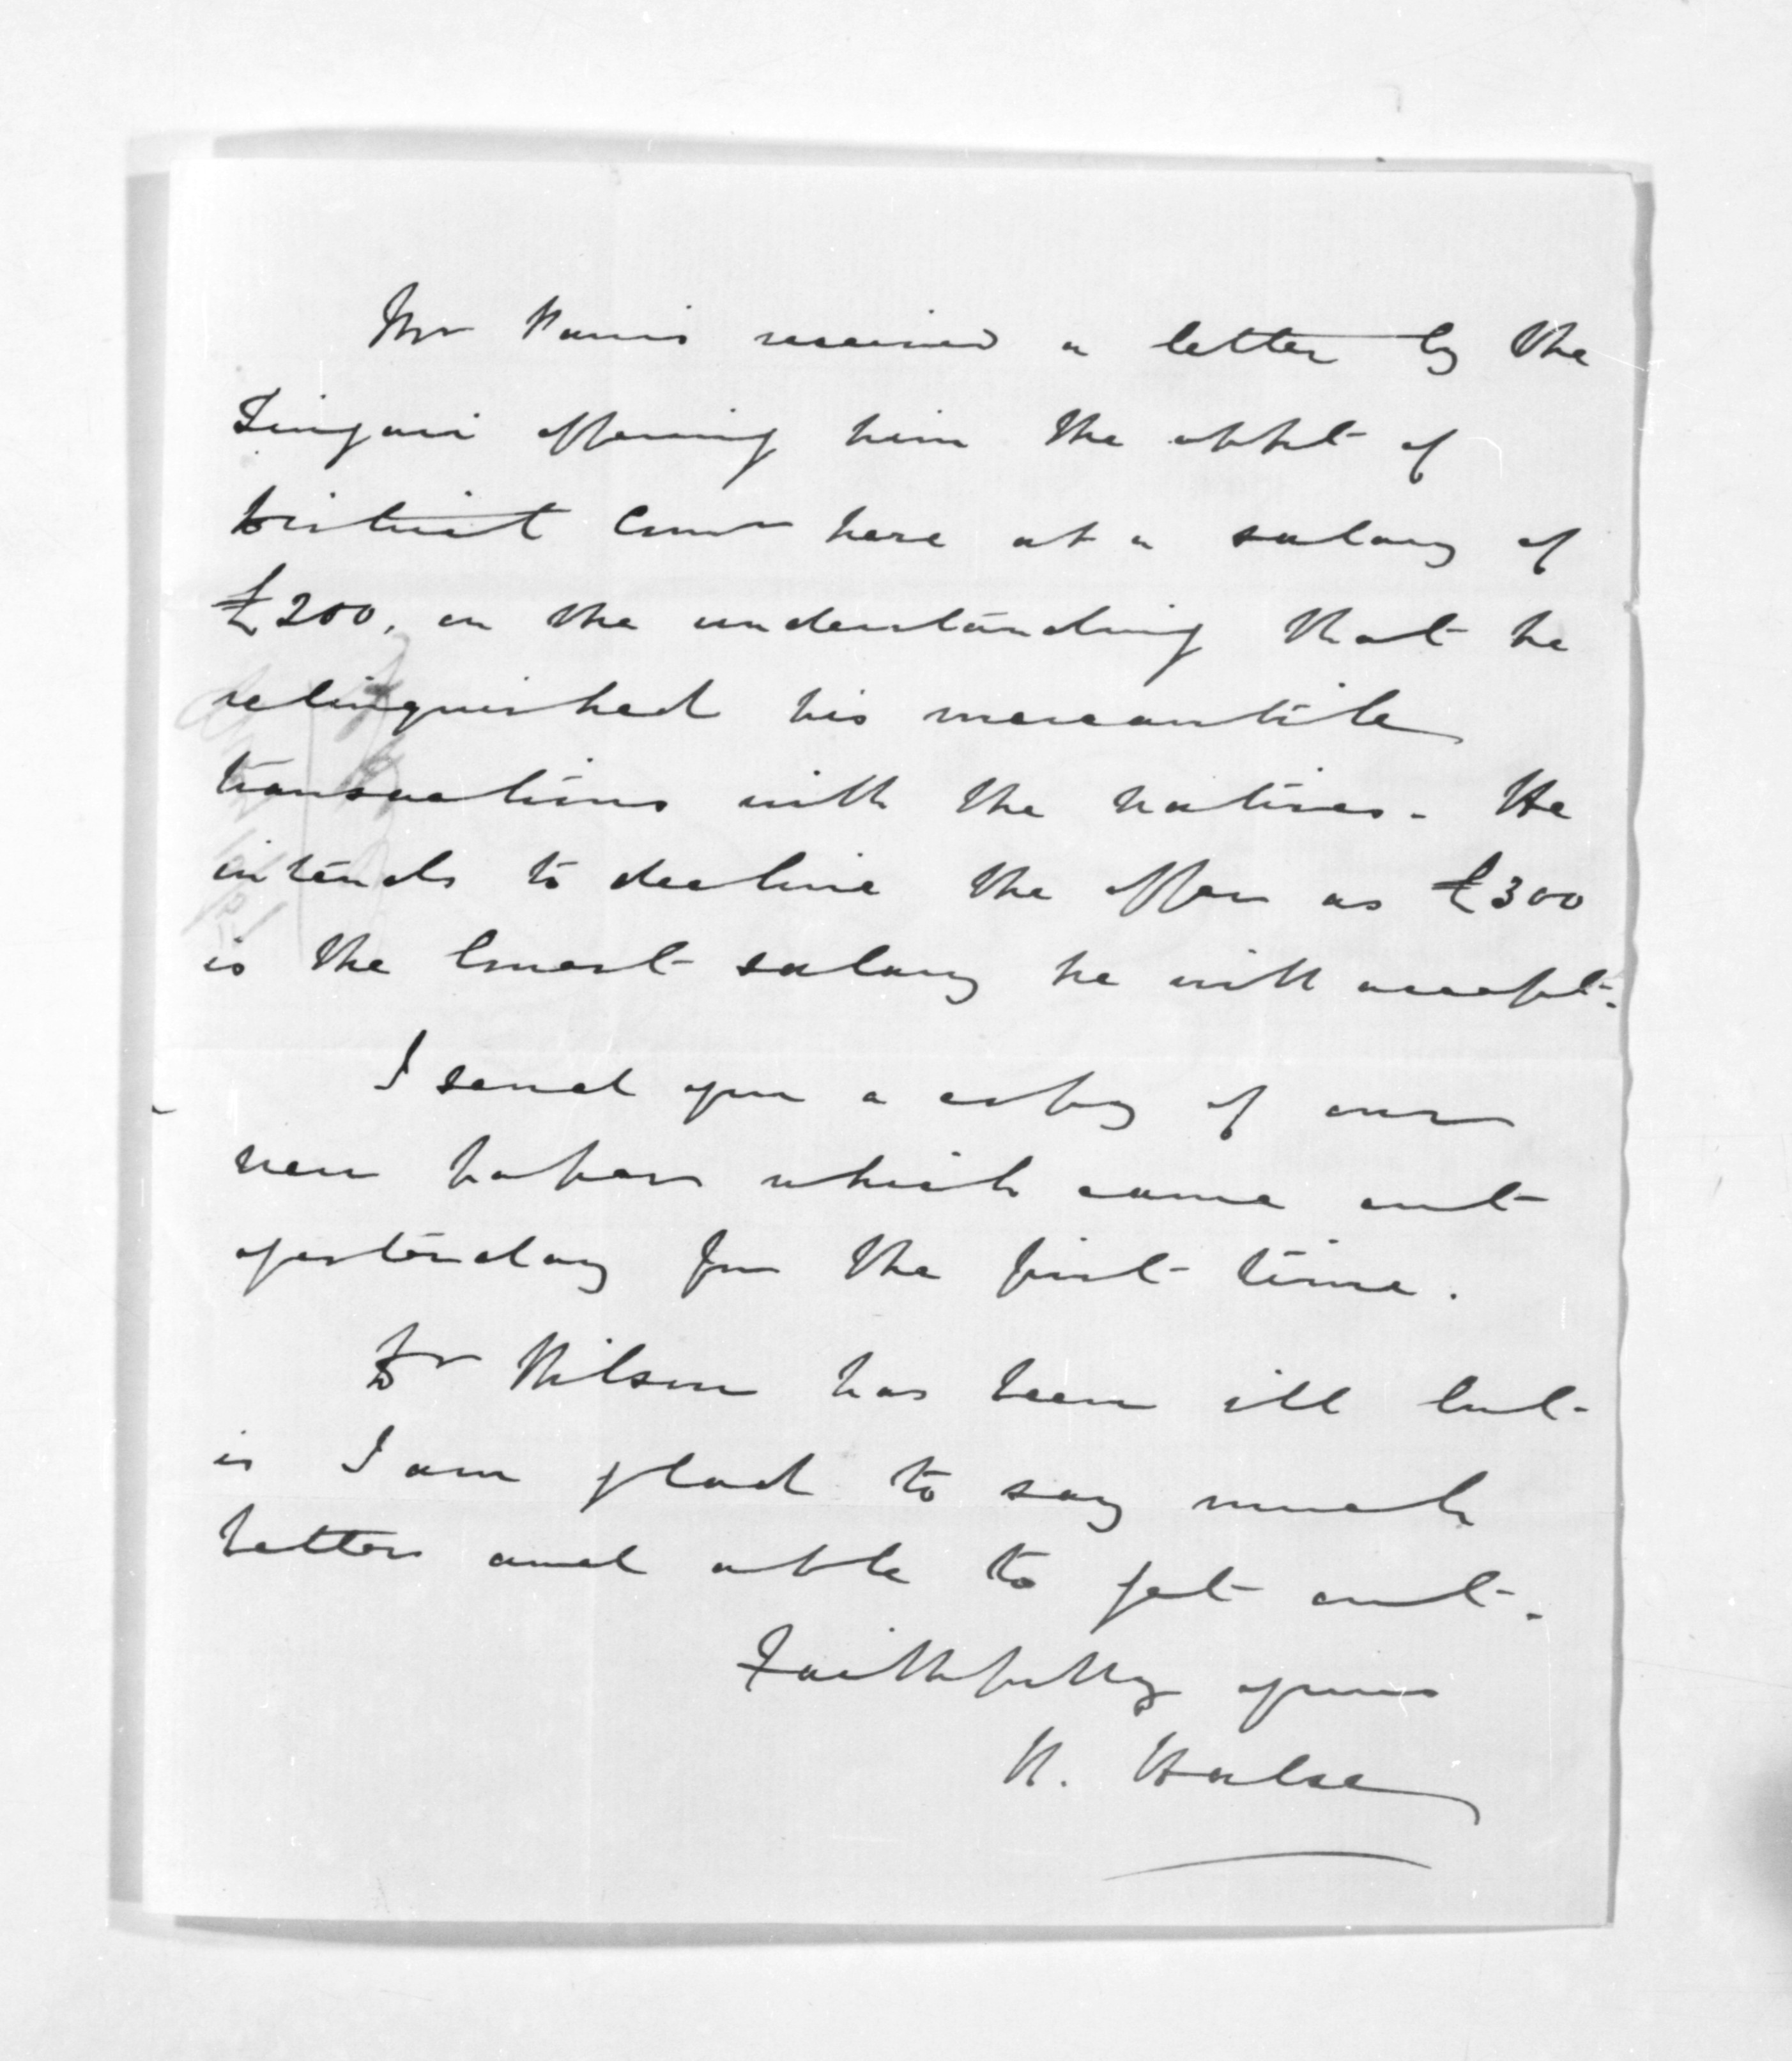 Mr Parris received a letter by the
Zingari offering him the appt of
District Comr here at a salary of
£200, on the understanding that he
relinquished his mercantile
transactions with the natives. He
intends to decline the offer as £300
is the lowest salary he will accept.
I send you a copy of our
new paper which came out
yesterday for the first time.
Dr Wilson has been ill but
is I am glad to say much
better and able to get out.
Faithfully yours
H. Halse